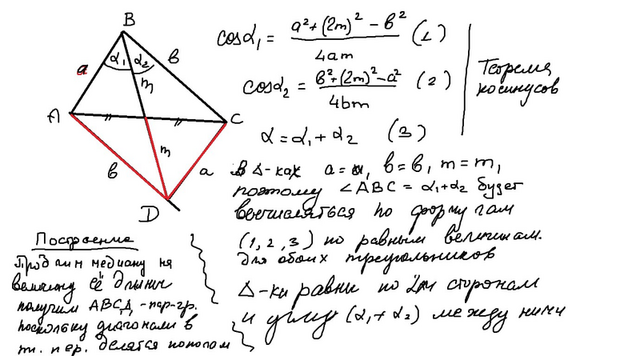 B
a
α₁
α₂
в
m
A
C
m
в
a
D
cosα₁ = (a²+(2m)²−в²)/4am (1)
cosα₂ = (в²+(2m)²−a²)/4вm (2)
α = α₁+α₂ (3)
Теорема
косинусов
в Δ-ках a=a, в=в, m=m,
поэтому ∠ABC = α₁+α₂ будет
вычисляться по формулам
(1, 2, 3) по равным величинам.
для обоих треугольников
Δ-ки равны по 2м сторонам
и углу (α₁+α₂) между ними
Построение
Продлим медиану на
величину её длины
получим ABCД -пар-гр.
поскольку диагонали в
т. пер. делятся пополам